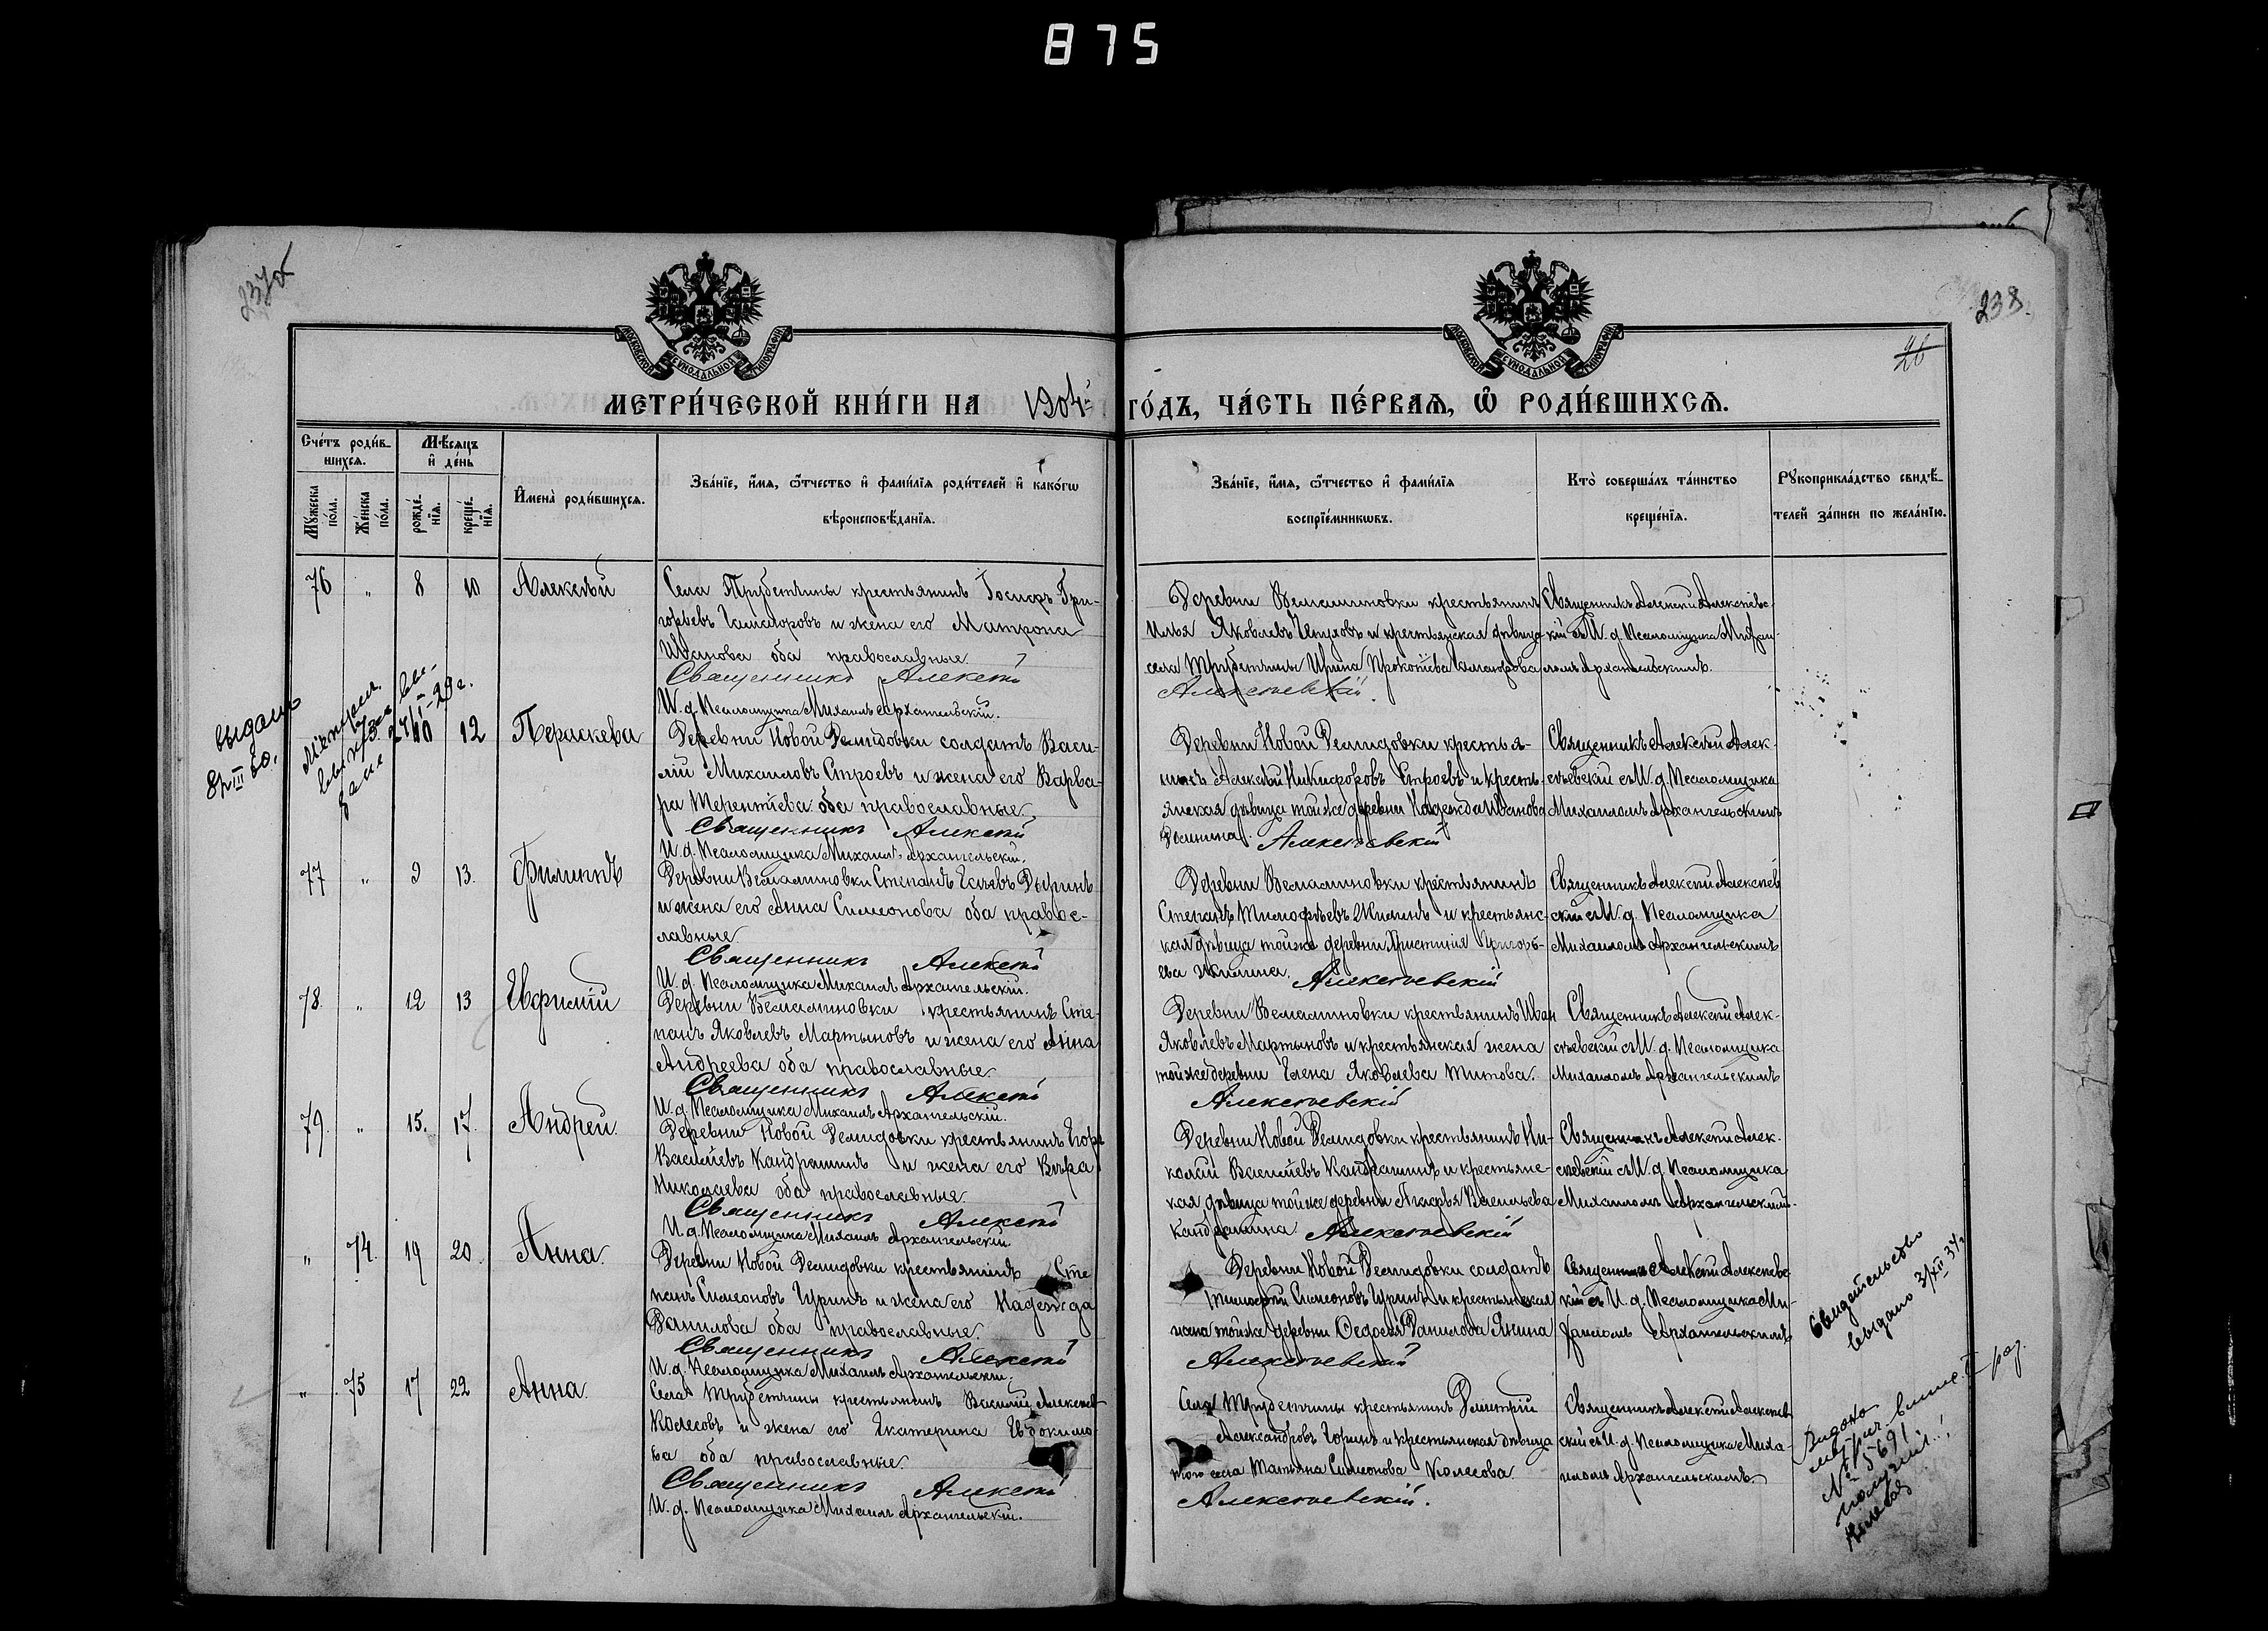 875
238.
26
МЕТРИ́ЧЕСКОЙ КНИ́ГИ НА 1904 ГО́ДЪ, ЧА́СТЬ ПЕ́РВАѦ, Ѡ РОДИ́ВШИХСѦ.
Сче́тъ роди́в-
шихсѧ.
Мꙋ́жеска
по́ла.
Же́нска
по́ла.
Мѣ́сѧцъ
и҆ де́нь
рожде́-
нїѧ.
креще́-
нїѧ.
И҆мена̀ роди́вшихсѧ.
Зва́нїе, и҆́мѧ, ѻ҆́тчество и҆ фами́лїѧ роди́телей и҆ како́гѡ
вѣроисповѣ́данїѧ.
Зва́нїе, и҆́мѧ, ѻ҆́тчество и҆ фами́лїѧ
воспрїе́мникѡвъ.
Кто̀ соверша́лъ та́инство
креще́нїѧ.
Рꙋкоприкла́дство свидѣ́-
телей за́писи по жела́нїю.
76 " 8 10 Алексѣй
Села Трубетчины крестьянинъ Іосифъ Гри-
горьевъ и жена его Матрона
Иванова оба православные.
Священникъ Алексѣй
И. д. Псаломщика Михаилъ Архангельскій.
Деревни Вельяминовки крестьянинъ
Илья Яковлевъ и крестьянская дѣвица
села Трубетчины Ирина
Алексѣевскій.
Священникъ Алексѣй Алексѣевс-
кій съ И. д. Псаломщика Михаи-
ломъ Архангельскимъ.
выдано
10 12 Параскева
Деревни Новой Демидовки солдатъ Васи-
лій Михаиловъ Строевъ и жена его Варва-
ра Терентіева оба православные
Священникъ Алексѣй
И. д. Псаломщика Михаилъ Архангельскій.
Деревни Новой Демидовки крестья-
нинъ Алексѣй Никифоровъ Строевъ и кресть-
янская дѣвица той же деревни Надежда Иванова
Алексѣевскій
Священникъ Алексѣй Алек-
сѣевскій съ И. д. Псаломщика
Михаиломъ Архангельскимъ
77 " 9 13. Филиппъ
Деревни Вельяминовки Степанъ
и жена его Анна Симеонова оба правос-
лавные
Священникъ Алексѣй
И. д. Псаломщика Михаилъ Архангельскій.
Деревни Вельяминовки крестьянинъ
Степанъ Тимофѣевъ Жилинъ и крестьянс-
кая дѣвица той же деревни Христинія Григорь-
ева Жилина. Алексѣевскій
Священникъ Алексѣй Алексѣев
скій съ И. д. Псаломщика
Михаиломъ Архангельскимъ
78. " 12 13 Евфимій
Деревни Вельяминовки крестьянинъ Сте-
панъ Яковлевъ Мартыновъ и жена его Анна
Андреева оба православные.
Священникъ Алексѣй
И. д. Псаломщика Михаилъ Архангельскій.
Деревни Вельяминовки крестьянинъ Иван
Яковлевъ Мартыновъ и крестьянская жена
той же деревни Елена Яковлева Титова.
Алексѣевскій
Священникъ Алексѣй Алек-
сѣевскій съ И. д. Псаломщика
Михаиломъ Архангельскимъ
79. " 15. 17. Андрей.
Деревни Новой Демидовки крестьянинъ Егоръ
Васильевъ Кандрашинъ и жена его Вѣра
Николаева оба православные.
Священникъ Алексѣй
И. д. Псаломщика Михаилъ Архангельскій
Деревни Новой Демидовки крестьянинъ Ни-
колай Васильевъ Кандрашинъ и крестьянс-
кая дѣвица той же деревни Агафья Васильева
Кандрашина. Алексѣевскій
Священникъ Алексѣй Алек-
сѣевскій съ И. д. Псаломщика
Михаиломъ Архангельскимъ.
" 74. 19 20. Анна.
Деревни Новой Демидовки крестьянинъ Сте
панъ Симеоновъ Гуринъ и жена его Надежда
Данилова оба православные.
Священникъ Алексѣй
И. д. Псаломщика Михаилъ Архангельскій.
Деревни Новой Демидовки солдатъ
Тимофей Симеоновъ Гуринъ и крестьянская
жена той же деревни Федосья Данилова Янина
Алексѣевскій
Священникъ Алексѣй Алексѣевс-
кій съ И. д. Псаломщика Ми-
хаиломъ Архангельскимъ
Свидетельство
выдано 3/XII 37г
" 75 17 22 Анна.
Села Трубетчины крестьянинъ Василій Алексѣев
Колесовъ и жена его Екатерина Евдокимо-
ва оба православные.
Священникъ Алексѣй
И. д. Псаломщика Михаилъ Архангельскій.
Села Трубетчины крестьянинъ Дмитрій
Александровъ Горинъ и крестьянская дѣвица
того села Татьяна Симеонова Колесова.
Алексѣевскій.
Священникъ Алексѣй Алексѣев
скій съ И. д. Псаломщика Миха-
иломъ Архангельскимъ.
№ 5691